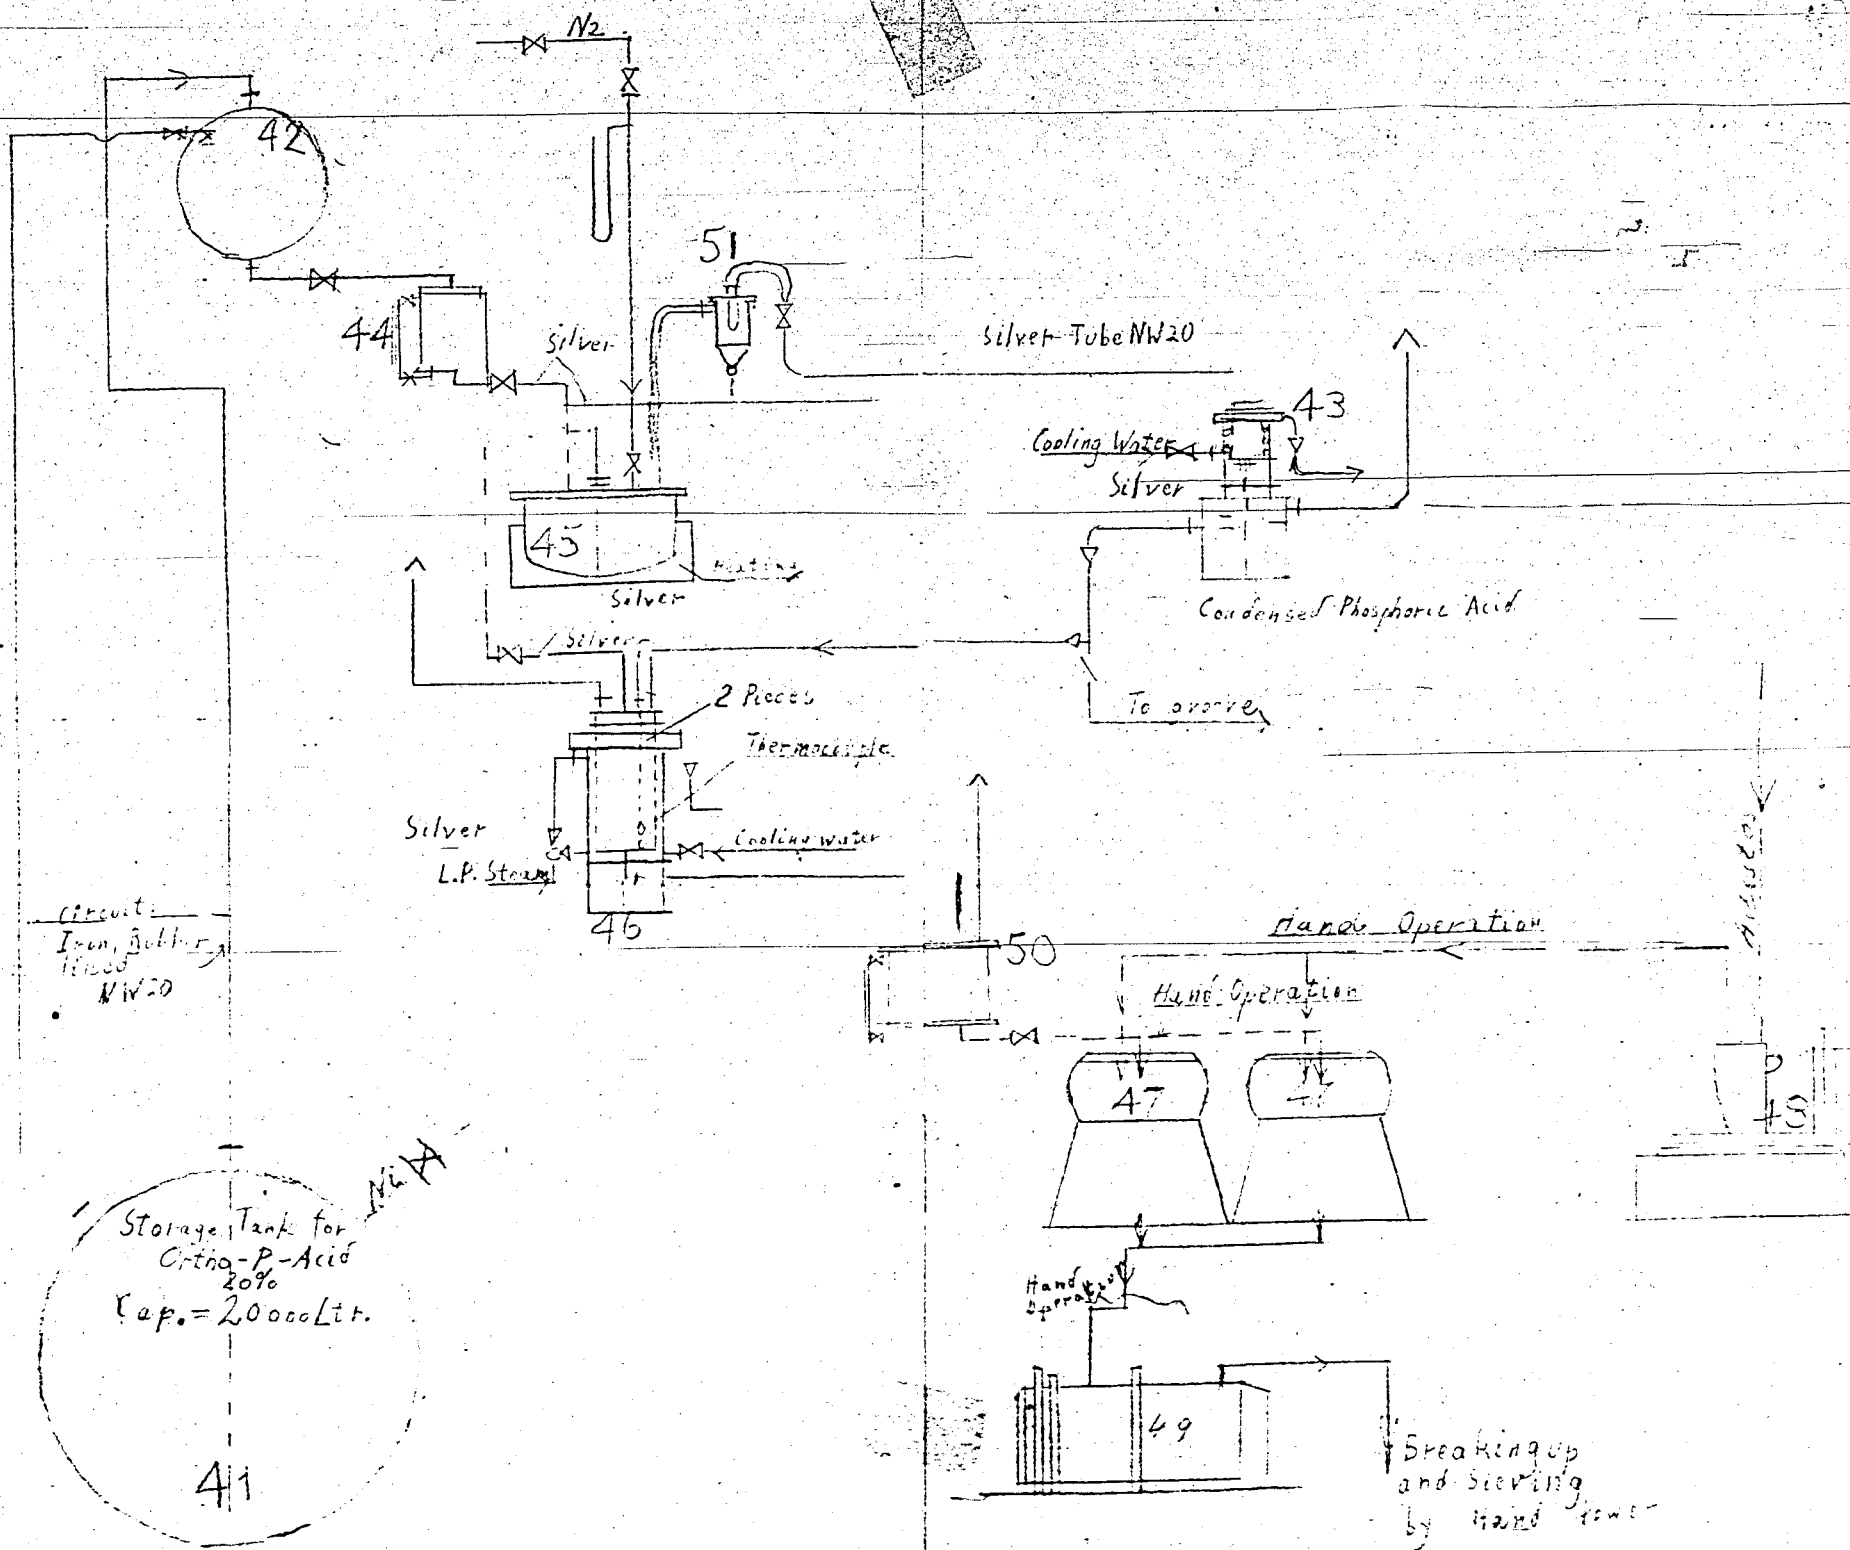 N2
42
51
44
Silver
Silver-Tube NW20
43
Cooling Water
Silver
45
Heating
Silver
Condensed Phosphoric Acid
Silver
2 Pieces
To groove
Thermocouple
Silver
Cooling water
L.P. Steam
46
Circuit:
Iron, Rubber
lined
NW20
Hand Operation
50
Hand Operation
47
47
48
N2
Storage Tank for
Ortho-P-Acid
20%
Cap. = 20000 Ltr.
41
Hand
Operation
49
Breaking up
and Sieving
by Hand